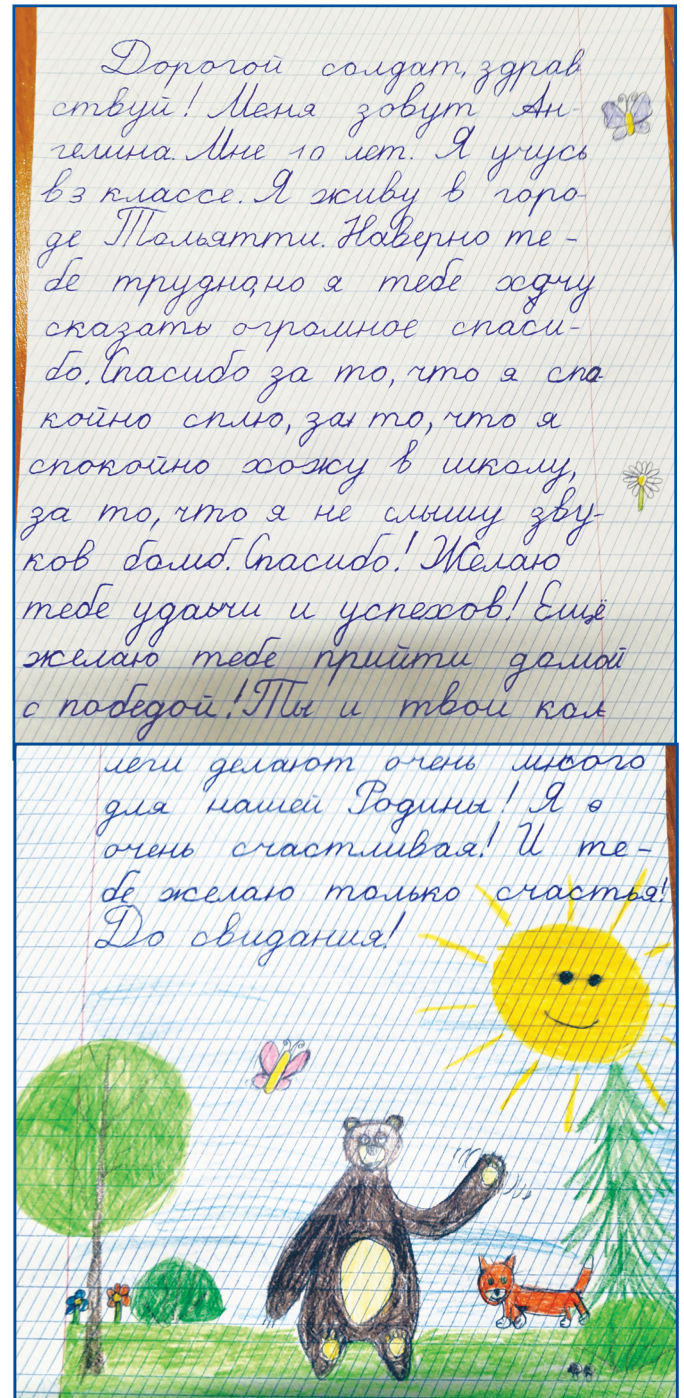 Дорогой солдат, здрав
ствуй! Меня зовут Ан-
гелина. Мне 10 лет. Я учусь
в 3 классе. Я живу в горо-
де Тольятти. Наверно те-
бе трудно, но я тебе хочу
сказать огромное спаси-
бо. Спасибо за то, что я спо-
койно сплю, за то, что я
спокойно хожу в школу,
за то, что я не слышу зву-
ков бомб. Спасибо! Желаю
тебе удачи и успехов! Ещё
желаю тебе прийти домой
с победой! Ты и твои кол
леги делают очень много
для нашей Родины! Я
очень счастливая! И те-
бе желаю только счастья!
До свидания!